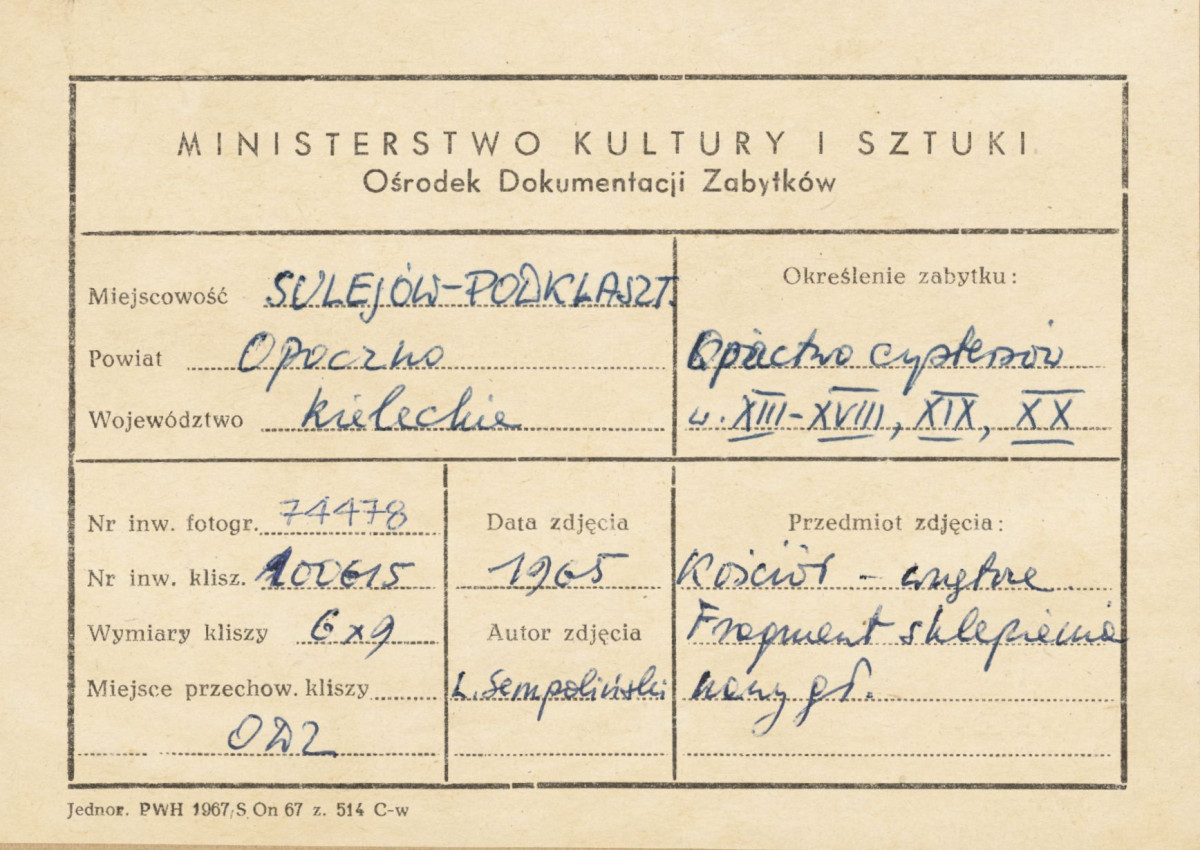 MINISTERSTWO KULTURY I SZTUKI
Ośrodek Dokumentacji Zabytków
Miejscowość SULEJÓW-PODKLASZT.
Powiat Opoczno
Województwo kieleckie
Określenie zabytku:
Opactwo cystersów
w. XIII-XVIII, XIX, XX
Nr inw. fotogr. 74478
Nr inw. klisz. 100615
Wymiary kliszy 6x9
Miejsce przechow. kliszy
ODZ
Data zdjęcia
1965
Autor zdjęcia
L. Sempoliński
Przedmiot zdjęcia:
Kościół – wnętrze
Fragment sklepienia
nawy gł.
Jednor. PWH 1967/S On 67 z. 514 C-w